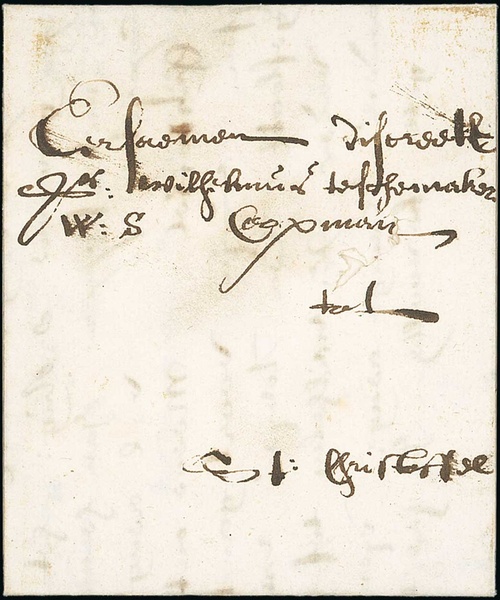 Eersaemen discreete
Sr. Wilhelmus teschemaker
W: S Copman
tot
St: Christoffel